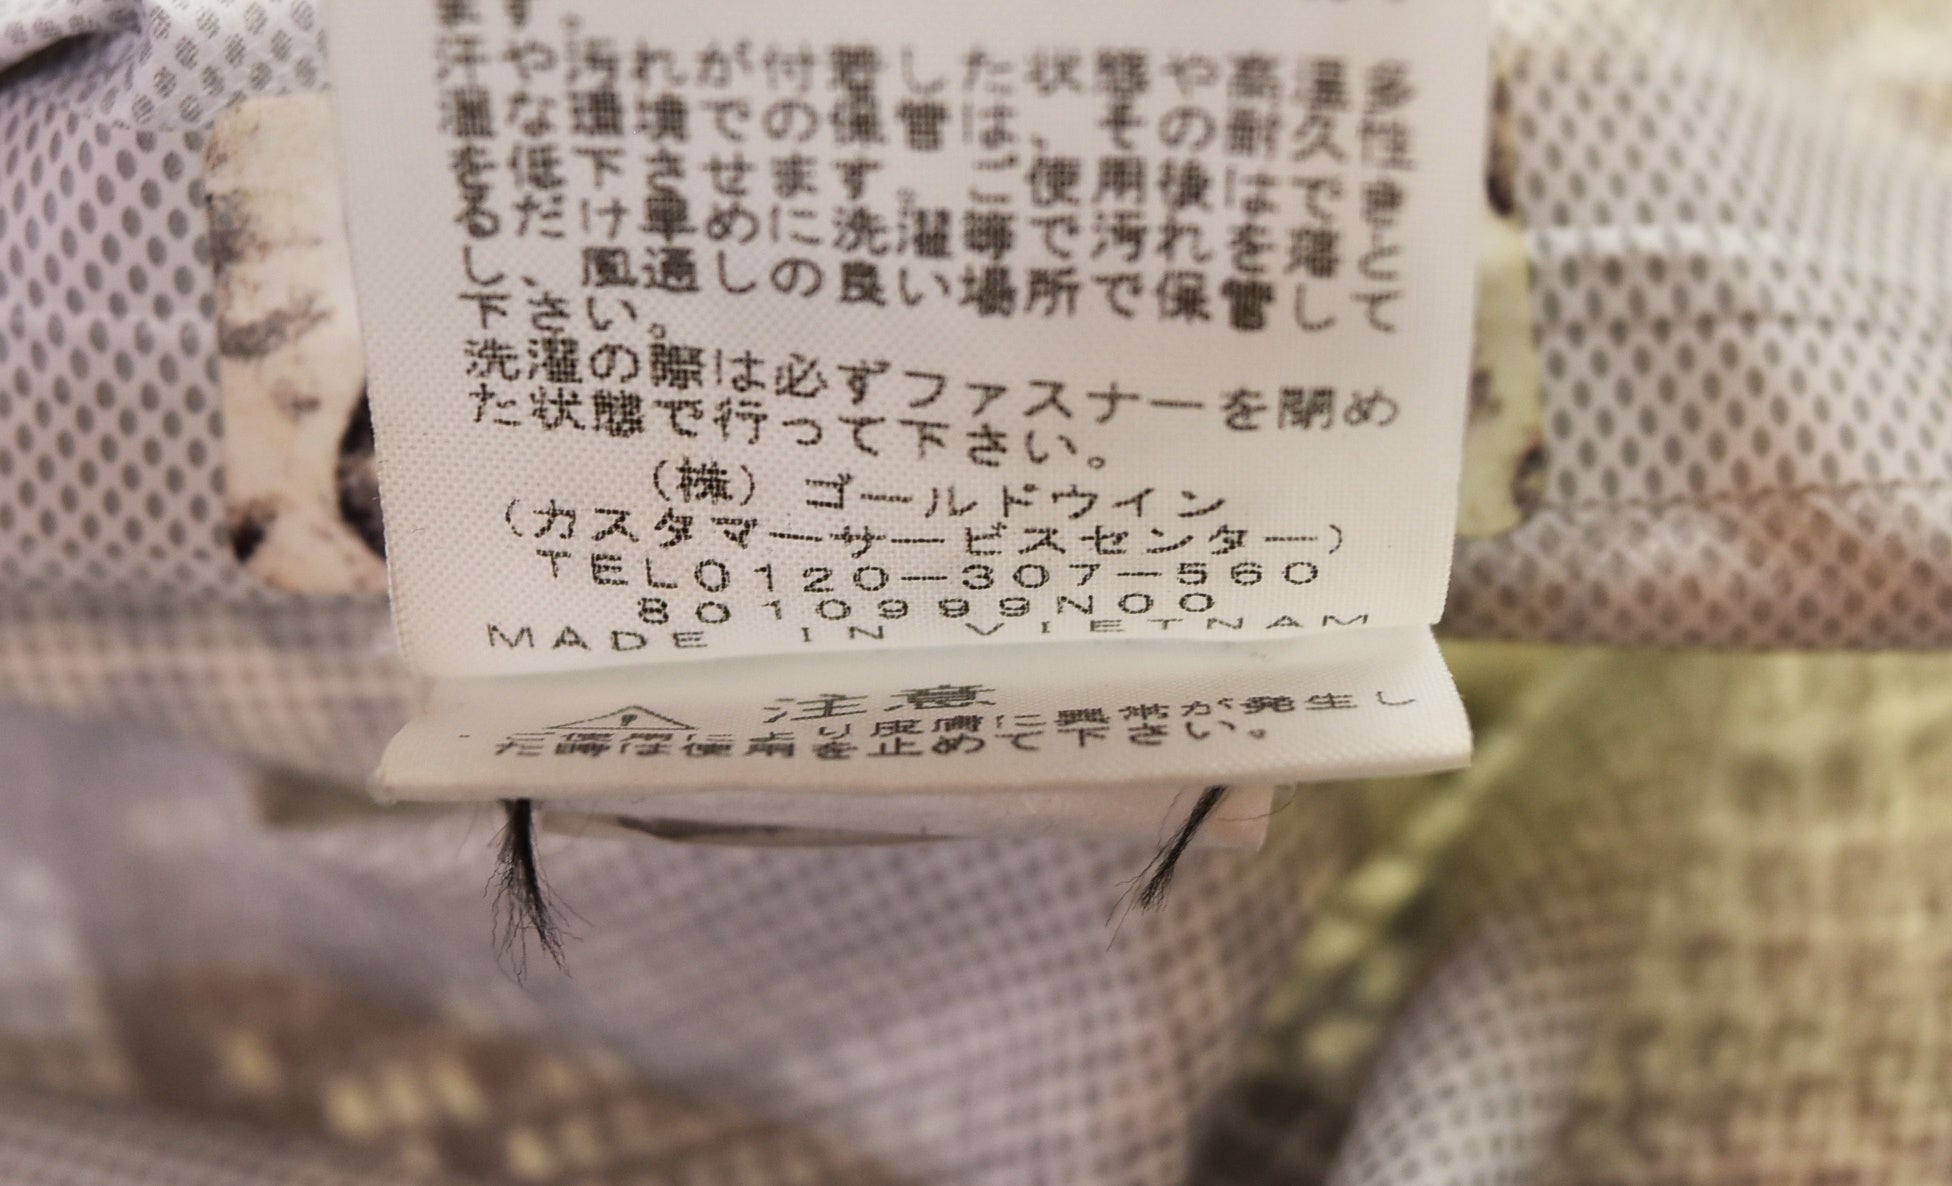 ます。
汗や汚れが付着した状態や高温多
湿な環境での保管は、その耐久性
を低下させます。ご使用後はできる
だけ単めに洗濯等で汚れを落とし
、風通しの良い場所で保管して
下さい。
洗濯の際は必ずファスナーを閉め
た状態で行って下さい。
(株) ゴールドウイン
(カスタマーサービスセンター)
TEL0120-307-560
8010999N00
MADE IN VIETNAM
注意
ご使用により皮膚に異常が発生し
た時は使用を止めて下さい。